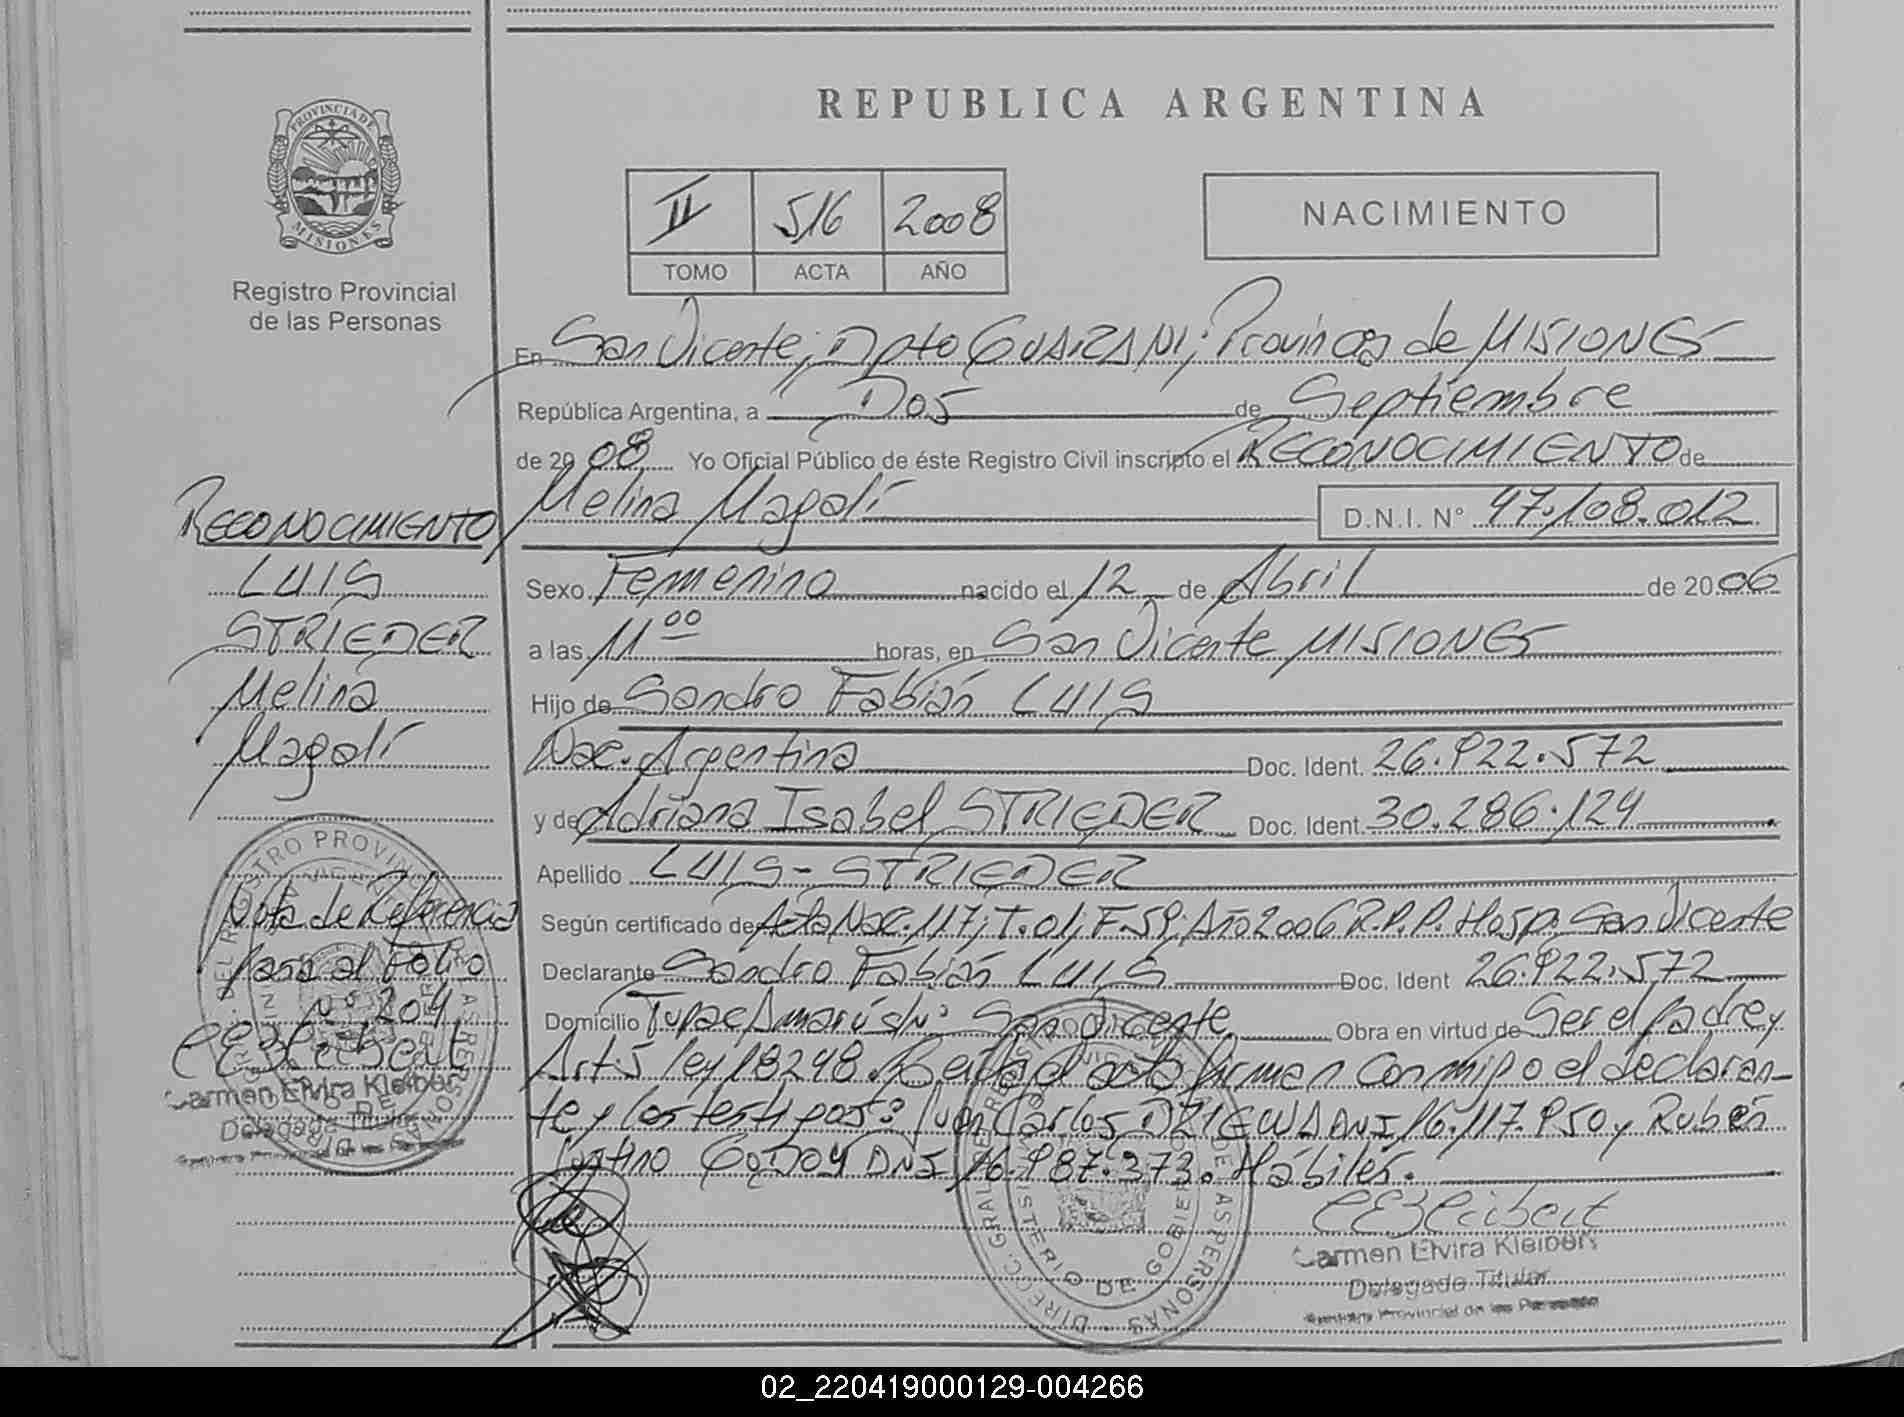 REPUBLICA ARGENTINA
PROVINCIA DE
MISIONES
Registro Provincial
de las Personas
II 516 2008
TOMO ACTA AÑO
NACIMIENTO
En San Vicente; Dpto GUARANI; Provincia de MISIONES
República Argentina, a Dos de Septiembre
de 2008 Yo Oficial Público de éste Registro Civil inscripto el RECONOCIMIENTO de
Melina Magalí D.N.I. N° 47.108.012
Sexo Femenino nacido el 12 de Abril de 2006
a las 11 00 horas, en San Vicente MISIONES
Hijo de Sandro Fabián LUIS
Nac. Argentina Doc. Ident. 26.922.572
y de Adriana Isabel STRIEDER Doc. Ident. 30.286.124
Apellido LUIS - STRIEDER
Según certificado de Acta Nac. 117; T. 01; F. 59; Año 2006 R.P.P. Hosp. San Vicente
Declarante Sandro Fabián LUIS Doc. Ident 26.922.572
Domicilio Tupac Amarú s/n: San Vicente Obra en virtud de Ser el padre y
Art 5 ley 18248. Leída el acta firman conmigo el declaran-
te y los testigos: Juan Carlos DNI 16.117.950 y Rubén
GODOY DNI 16.987.373. Hábiles.
RECONOCIMIENTO
LUIS
STRIEDER
Melina
Magalí
Nota de Referencia
Pasa al Folio
n° 204
Carmen Elvira Kleibert
Delegada Titular
Carmen Elvira Kleibert
Delegada Titular
Registro Provincial de las Personas
02_220419000129-004266